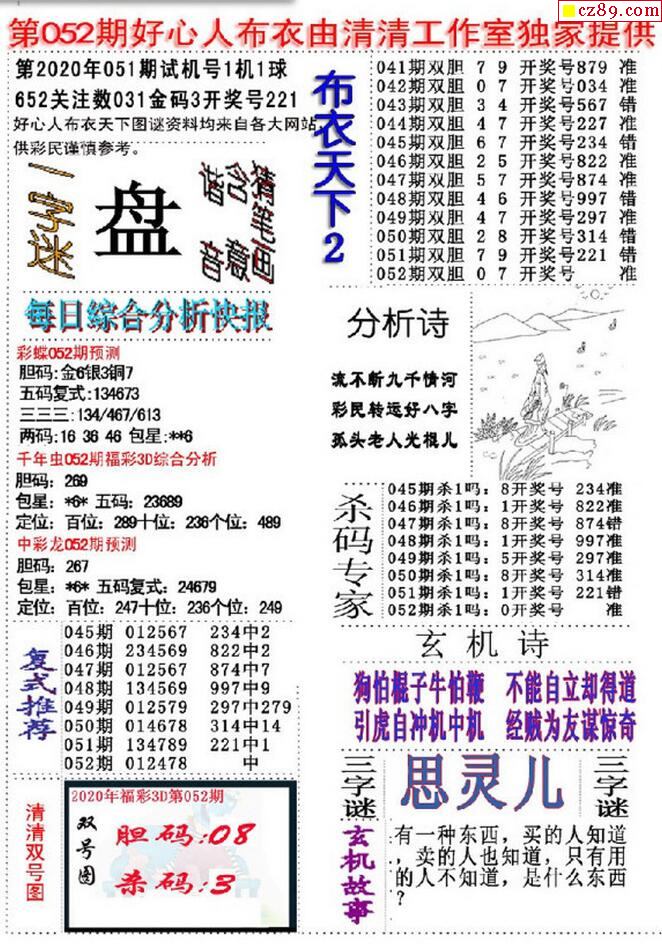 cz89.com
第052期好心人布衣由清清工作室独家提供
第2020年051期试机号1机1球
652关注数031金码3开奖号221
好心人布衣天下图谜资料均来自各大网站,
供彩民谨慎参考。
一字迷
盘
谐音 含意 猜笔画
每日综合分析快报
彩蝶052期预测
胆码:金6银3铜7
五码复式:134673
三三三:134/467/613
两码:16 36 46 包星:**6
千年虫052期福彩3D综合分析
胆码: 269
包星: *6* 五码: 23689
定位: 百位: 289十位: 236个位: 489
中彩龙052期预测
胆码: 267
包星: *6* 五码复式: 24679
定位: 百位: 247十位: 236个位: 249
复式推荐
045期 012567 234中2
046期 234569 822中2
047期 012567 874中7
048期 134569 997中9
049期 012579 297中279
050期 014678 314中14
051期 134789 221中1
052期 012478 中
清清双号图
2020年福彩3D第052期
双号图
胆码:08
杀码:3
布衣天下2
041期双胆 7 9 开奖号879 准
042期双胆 0 7 开奖号034 准
043期双胆 3 4 开奖号567 错
044期双胆 4 7 开奖号227 准
045期双胆 6 7 开奖号234 错
046期双胆 2 5 开奖号822 准
047期双胆 5 7 开奖号874 准
048期双胆 4 6 开奖号997 错
049期双胆 4 7 开奖号297 准
050期双胆 2 8 开奖号314 错
051期双胆 7 9 开奖号221 错
052期双胆 0 7 开奖号 准
分析诗
流不断九千情河
彩民转运好八字
孤头老人光棍儿
杀码专家
045期杀1吗: 8开奖号 234准
046期杀1吗: 1开奖号 822准
047期杀1吗: 8开奖号 874错
048期杀1吗: 1开奖号 997准
049期杀1吗: 5开奖号 297准
050期杀1吗: 8开奖号 314准
051期杀1吗: 1开奖号 221错
052期杀1吗: 0开奖号 准
玄机诗
狗怕棍子牛怕鞭 不能自立却得道
引虎自冲机中机 经贼为友谋惊奇
三字谜
思灵儿
三字谜
玄机故事
有一种东西, 买的人知道
, 卖的人也知道, 只有用
的人不知道, 是什么东西
?